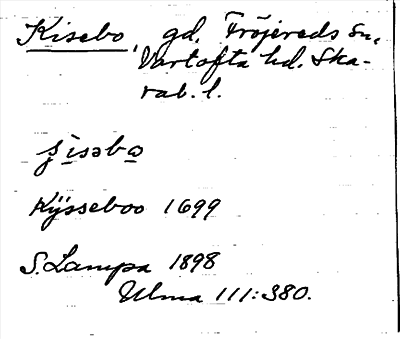 Kisebo, gd, Fröjereds sn,
Vartofta hd. Ska-
rab. l.
ʂisəbo
Kÿsseboo 1699
S. Lampa 1898
Ulma 111:380.